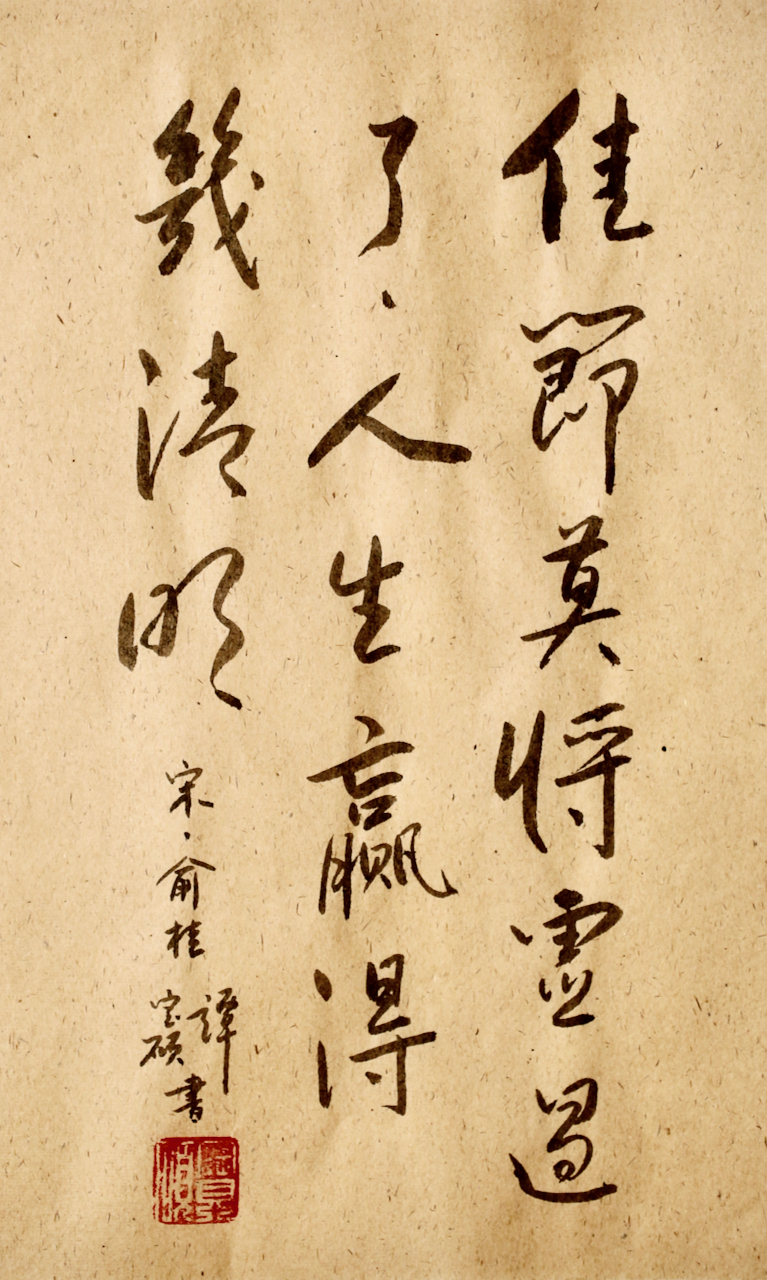 佳節莫將虛過
了、人生贏得
幾清明
宋·俞桂
譚
宝碩
書